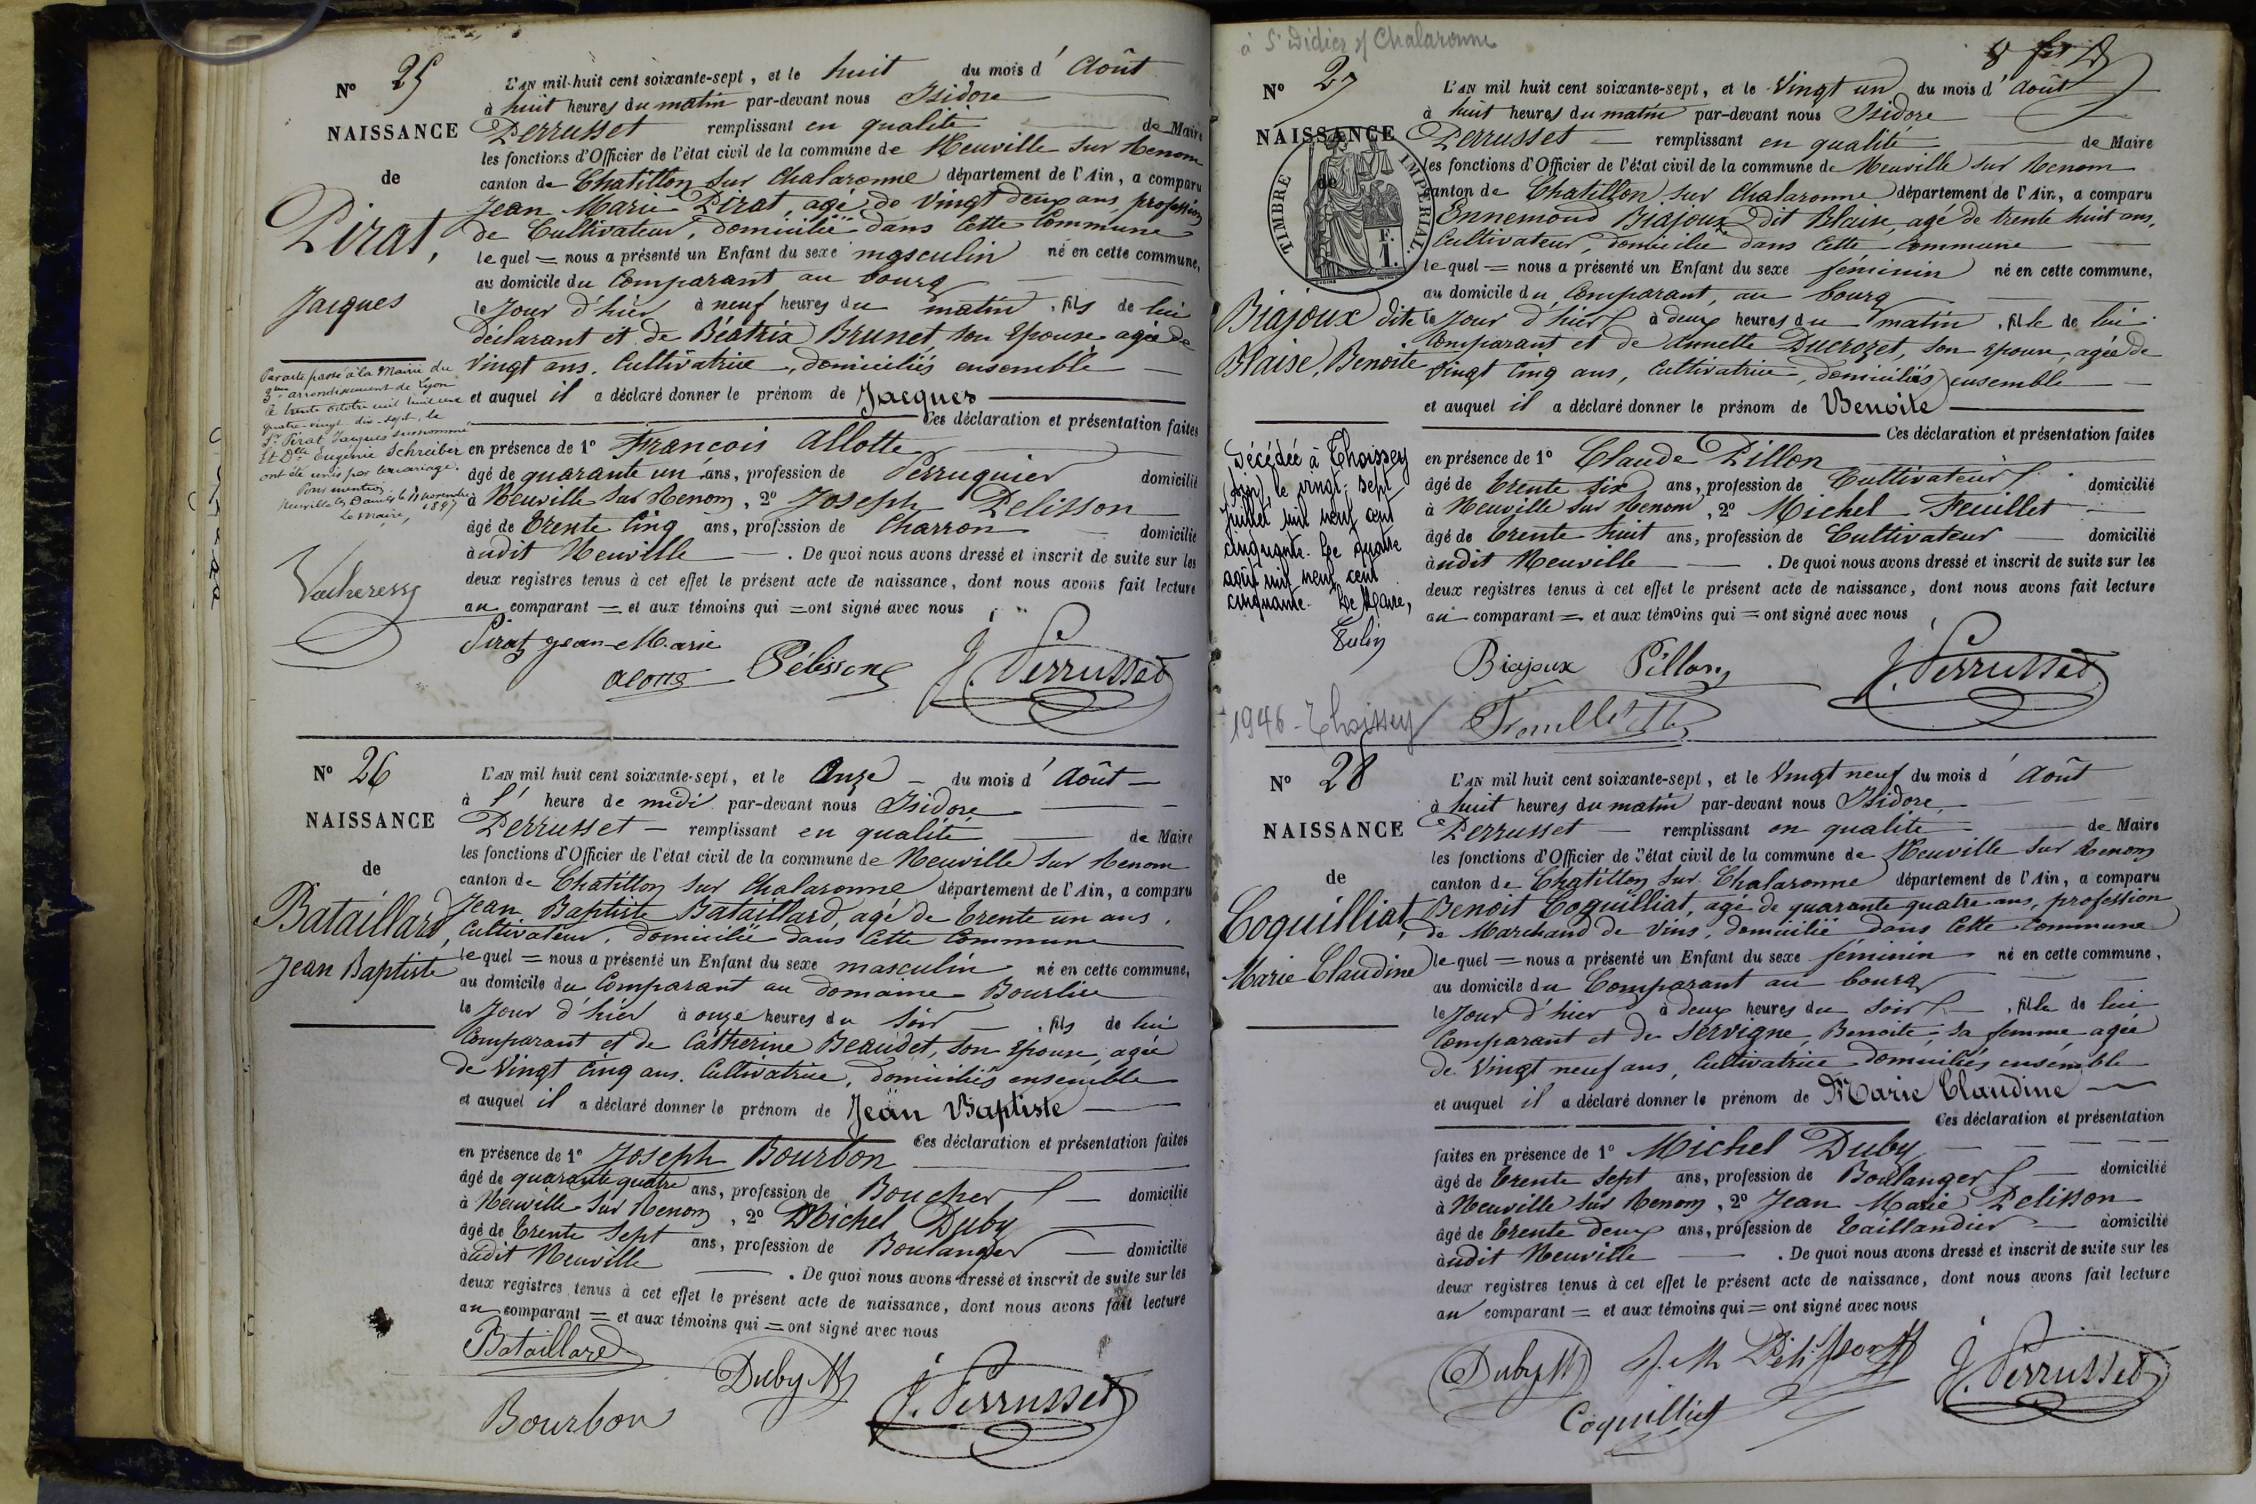 N° 25
NAISSANCE
de
Pirat,
Jacques
Par acte passé à la Mairie du
3me arrondissement de Lyon
le trente octobre mil huit cent
quatre-vingt dix-sept, le
Sr Pirat Jacques surnommé
et Dlle Eugénie Schreiber
ont été unis par le mariage.
Pour mention
Neuville les Dames le 11 novembre
1897
Le Maire,
L'AN mil huit cent soixante-sept, et le huit du mois d' Août
à huit heures du matin par-devant nous Isidore
Perrusset remplissant en qualité de Maire
les fonctions d'Officier de l'état civil de la commune de Neuville sur Renom
canton de Chatillon sur Chalaronne département de l'Ain, a comparu
Jean Marie Pirat, agé de vingt deux ans, profession
de Cultivateur, domicilié dans cette Commune
lequel = nous a présenté un Enfant du sexe masculin né en cette commune,
au domicile du Comparant au bourg
le Jour d'hier à neuf heures du matin, fils de lui
déclarant et de Béatrix Brunet, son Epouse agée de
Vingt ans, Cultivatrice, domiciliés ensemble
et auquel il a déclaré donner le prénom de Jacques
Ces déclaration et présentation faites
en présence de 1° François Allotte
âgé de quarante un ans, profession de Perruquier domicilié
à Neuville sur Renom, 2° Joseph Pelisson
âgé de trente cinq ans, profession de Charron domicilié
audit Neuville. De quoi nous avons dressé et inscrit de suite sur les
deux registres tenus à cet effet le présent acte de naissance, dont nous avons fait lecture
au comparant = et aux témoins qui = ont signé avec nous
Pirat Jean-Marie
Pélisson
J. Perrusset
N° 26
NAISSANCE
de
Bataillard,
Jean Baptiste
L'AN mil huit cent soixante-sept, et le Onze du mois d' Août
à l' heure de midi par-devant nous Isidore
Perrusset remplissant en qualité de Maire
les fonctions d'Officier de l'état civil de la commune de Neuville sur Renom
canton de Chatillon sur Chalaronne département de l'Ain, a comparu
Jean Baptiste Bataillard, agé de trente un ans,
Cultivateur, domicilié dans cette Commune
lequel = nous a présenté un Enfant du sexe masculin né en cette commune,
au domicile du Comparant au domaine Bourlier
le Jour d'hier à onze heures du soir, fils de lui
Comparant et de Catherine Beaudet, son Epouse, agée
de Vingt cinq ans, Cultivatrice, domiciliés ensemble
et auquel il a déclaré donner le prénom de Jean Baptiste
Ces déclaration et présentation faites
en présence de 1° Joseph Bourbon
âgé de quarante quatre ans, profession de Boucher domicilié
à Neuville sur Renom, 2° Michel Duby
âgé de trente sept ans, profession de Boulanger domicilié
audit Neuville. De quoi nous avons dressé et inscrit de suite sur les
deux registres tenus à cet effet le présent acte de naissance, dont nous avons fait lecture
au comparant = et aux témoins qui = ont signé avec nous
Bataillard
Duby M
J. Perrusset
Bourbon
à St Didier s/ Chalaronne
N° 27
NAISSANCE
de
TIMBRE IMPÉRIAL.
F.
1.
Biajoux dite
Blaise, Benoite
Décédée à Thoissey
(Ain), le vingt-sept
juillet mil neuf cent
cinquante. Le quatre
août mil neuf cent
cinquante. Le Maire,
L'AN mil huit cent soixante-sept, et le Vingt un du mois d' Août
à huit heures du matin par-devant nous Isidore
Perrusset remplissant en qualité de Maire
les fonctions d'Officier de l'état civil de la commune de Neuville sur Renom
canton de Chatillon sur Chalaronne département de l'Ain, a comparu
Ennemond Biajoux dit Blaise, agé de trente huit ans,
Cultivateur, domicilié dans cette Commune
lequel = nous a présenté un Enfant du sexe féminin né en cette commune,
au domicile du Comparant, au bourg
le Jour d'hier à deux heures du matin, fille de lui
Comparant et de Annette Ducrozet, son Epouse, agée de
vingt cinq ans, Cultivatrice, domiciliés ensemble
et auquel il a déclaré donner le prénom de Benoite
Ces déclaration et présentation faites
en présence de 1° Claude Pillon
âgé de trente six ans, profession de Cultivateur domicilié
à Neuville sur Renom, 2° Michel Feuillet
âgé de trente huit ans, profession de Cultivateur domicilié
audit Neuville. De quoi nous avons dressé et inscrit de suite sur les
deux registres tenus à cet effet le présent acte de naissance, dont nous avons fait lecture
au comparant = et aux témoins qui = ont signé avec nous
Biajoux Pillon
J. Perrusset
1946 - Thoissey
N° 28
NAISSANCE
de
Coquilliat,
Marie Claudine
L'AN mil huit cent soixante-sept, et le Vingt neuf du mois d' Août
à huit heures du matin par-devant nous Isidore
Perrusset remplissant en qualité de Maire
les fonctions d'Officier de l'état civil de la commune de Neuville sur Renom
canton de Chatillon sur Chalaronne département de l'Ain, a comparu
Benoit Coquilliat, agé de quarante quatre ans, profession
de Marchand de vins, domicilié dans cette commune
lequel = nous a présenté un Enfant du sexe féminin né en cette commune,
au domicile du Comparant au bourg
le Jour d'hier à deux heures du soir, fille de lui
Comparant et de Servigne, Benoite, sa femme agée
de Vingt neuf ans, Cultivatrice domiciliés ensemble
et auquel il a déclaré donner le prénom de Marie Claudine
Ces déclaration et présentation
faites en présence de 1° Michel Duby
âgé de trente sept ans, profession de Boulanger domicilié
à Neuville sur Renom, 2° Jean Marie Pelisson
âgé de trente deux ans, profession de Taillandier domicilié
audit Neuville. De quoi nous avons dressé et inscrit de suite sur les
deux registres tenus à cet effet le présent acte de naissance, dont nous avons fait lecture
au comparant = et aux témoins qui = ont signé avec nous
Duby M J. M Pelisson
J. Perrusset
Coquilliat